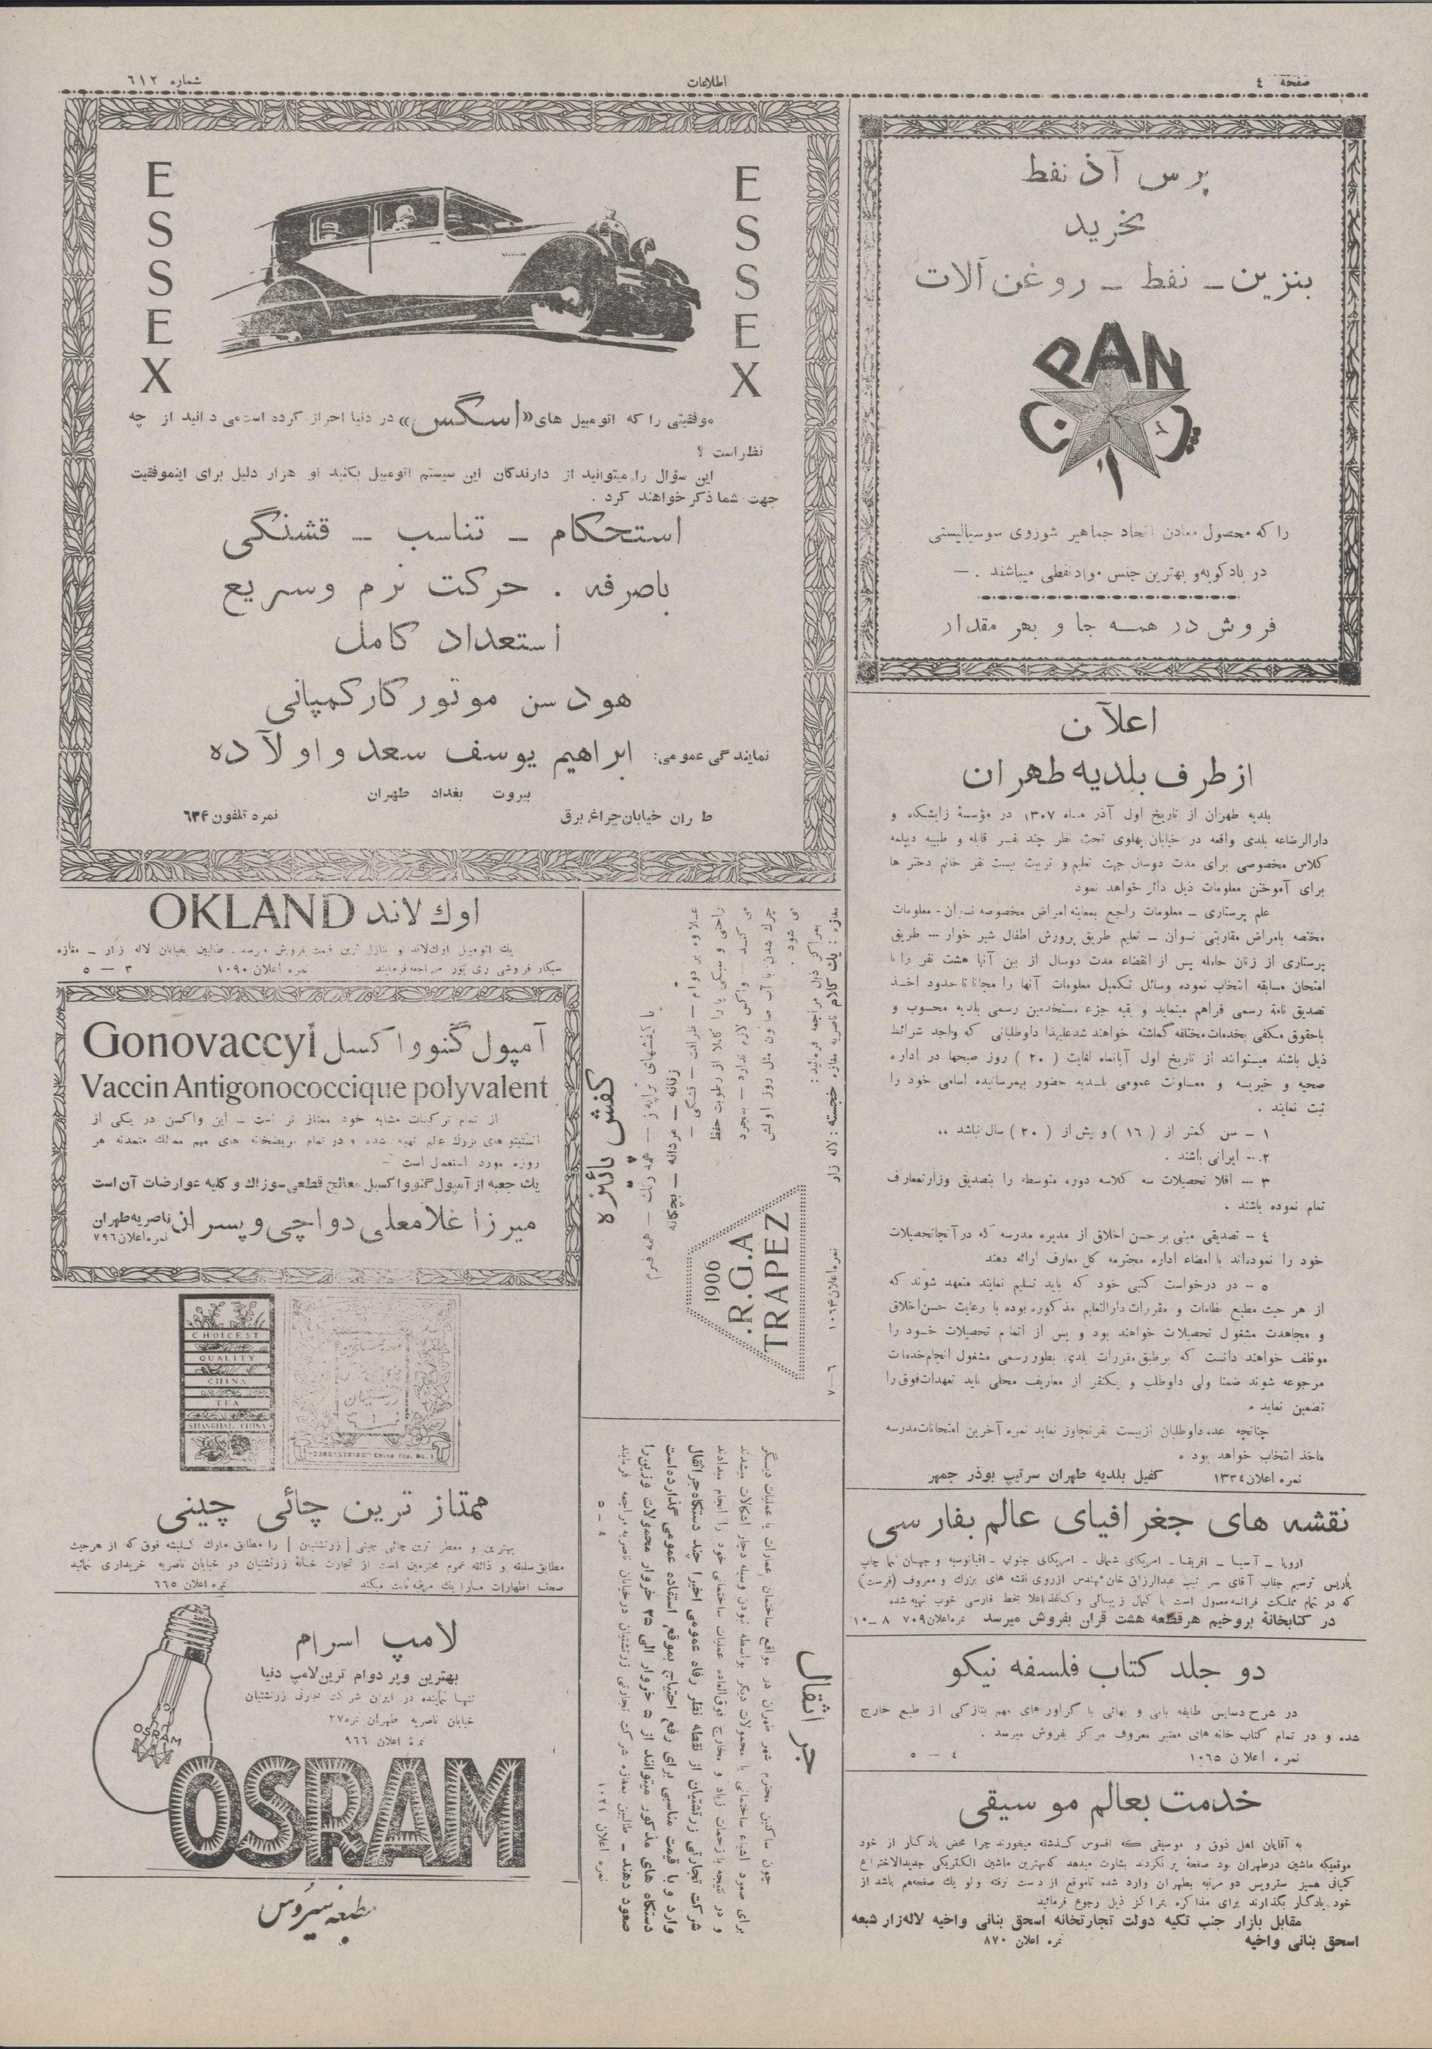 صفحه ٤
اطلاعات
شماره ٦١٢
پرس آذ نفط
بخرید
بنزین ــ نفط ــ روغن آلات
PAN
پرس آ ذ
را که محصول معادن اتحاد جماهیر شوروی سوسیالیستی
در بادکوبه و بهترین جنس مواد نفطی میباشند . —
فروش در همه جا و بهر مقدار
اعلآن
از طرف بلدیه طهران
بلدیه طهران از تاریخ اول آذر ماه ١٣٠٧ در مؤسسهٔ زایشگاه و
دارالرضاعه بلدی واقعه در خیابان پهلوی تحت نظر چند نفر قابله و طبیبه دیپلمه
کلاس مخصوصی برای مدت دوسال جهت تعلیم و تربیت بیست نفر خانم دختر ها
برای آموختن معلومات ذیل دائر خواهد نمود
علم پرستاری ــ معلومات راجع بمعاینه امراض مخصوصه نسوان - معلومات
مختصه بامراض مقاربتی نسوان ــ تعلیم طریق پرورش اطفال شیر خوار -- طریق
پرستاری از زنان حامله پس از انقضاء مدت دوسال از بین آنها هشت نفر را با
امتحان مسابقه انتخاب نموده وسائل تکمیل معلومات آنها را مجانا تا حدود اخذ
تصدیق نامهٔ رسمی فراهم مینماید و بقیه جزء مستخدمین رسمی بلدیه محسوب و
باحقوق مکفی بخدمات مختلفه گماشته خواهند شد علیهذا داوطلبانی که واجد شرائط
ذیل باشند میتوانند از تاریخ اول آبانماه لغایت ( ٢٠ ) روز صبحها در اداره
صحیه و خیریه و معاونت عمومی بلدیه حضور بهمرسانیده اسامی خود را
ثبت نمایند .
١ - سن کمتر از ( ١٦ ) و بیش از ( ٢٠ ) سال نباشد ..
٢ -- ایرانی باشند .
٣ -- اقلا تحصیلات سه کلاسه دوره متوسطه را بتصدیق وزارتمعارف
تمام نموده باشند .
٤ - تصدیقی مبنی بر حسن اخلاق از مدیره مدرسه که در آنجا تحصیلات
خود را نموده‌اند با امضاء اداره محترمه کل معارف ارائه دهند
٥ - در درخواست کتبی خود که باید تسلیم نمایند متعهد شوند که
از هر حیث مطیع نظامات و مقررات دارالتعلیم مذکوره بوده با رعایت حسن اخلاق
و مجاهدت مشغول تحصیلات خواهند بود و پس از اتمام تحصیلات خود را
موظف خواهند دانست که بر طبق مقررات بلدی بطور رسمی مشغول انجام خدمات
مرجوعه شوند ضمنا ولی داوطلب و یکنفر از معاریف محلی باید تعهدات فوق را
تضمین نماید .
چنانچه عده داوطلبان از بیست نفر تجاوز نماید نمره آخرین امتحانات مدرسه
ماخذ انتخاب خواهد بود .
نمره اعلان ١٣٣٤ کفیل بلدیه طهران سرتیپ بوذر جمهر
نقشه های جغرافیای عالم بفارسی
اروپا ــ آسیا ــ افریقا ــ امریکای شمالی ــ امریکای جنوبی ــ اقیانوسیه و جهان نما چاپ
پاریس ترسیم جناب آقای سر تیپ عبدالرزاق خان مهندس از روی نقشه های بزرگ و معروف (فرست)
که در تمام مملکت فرانسه معمول است با کمال زیبائی و کاغذ اعلا بخط فارسی خوب تهیه شده
در کتابخانهٔ بروخیم هر قطعه هشت قران بفروش میرسد نمره اعلان ٧٠٩ ٨ — ١٠
دو جلد کتاب فلسفه نیکو
در شرح دسایس طایفه بابی و بهائی با گراور های مهم بتازگی از طبع خارج
شده و در تمام کتاب خانه های معتبر معروف مرکز بفروش میرسد .
نمره اعلان ١٠٦٥ ٤ — ٥
خدمت بعالم موسیقی
به آقایان اهل ذوق و موسیقی که افسوس گذشته میخورند چرا محض یادگار از خود
موقعیکه ماشین در طهران بود صفحهٔ پر نکردند بشارت میدهد که بهترین ماشین الکتریکی جدید الاختراع
کمپانی هیز ستر ویس دو مرتبه بطهران وارد شده تا موقع از دست نرفته ولو یک صفحه هم باشد از
خود یادگار بگذارند برای مذاکره بمراکز ذیل رجوع فرمائید
مقابل بازار جنب تکیه دولت تجارتخانه اسحق بنانی واخیه لاله زار شعبه
اسحق بنانی واخیه نمره اعلان ٨٧٠
ESSEX
ESSEX
موفقیتی را که اتومبیل های «اسگس» در دنیا احراز کرده است می دانید از چه
نظر است ؟
این سؤال را میتوانید از دارندگان این سیستم اتومبیل بکنید او هزار دلیل برای اینموفقیت
جهت شما ذکر خواهند کرد .
استحکام ــ تناسب ــ قشنگی
باصرفه . حرکت نرم وسریع
استعداد کامل
هودسن موتور کار کمپانی
نمایندگی عمومی: ابراهیم یوسف سعد و اولآده
بیروت بغداد طهران
طهران خیابان چراغ برق نمره تلفون ٦٣۴
اوك لاند OKLAND
یك اتومبیل اوك لاند نو بنازل ترین قیمت بفروش میرسد . طالبین بخیابان لاله زار ــ مغازه
سیگار فروشی ری پور مراجعه فرمایند نمره اعلان ١٠٩٠ ٣ — ٥
آمپول گنوواکسل Gonovaccyl
Vaccin Antigonococcique polyvalent
از تمام ترکیبات مشابه خود ممتاز تر است ــ این واکسن در یکی از
انستیتو های بزرك عالم تهیه شده و در تمام مریضخانه های مهم ممالك متمدنه هر
روزه مورد استعمل است -
یك جعبه از آمپول گنوواکسیل معالج قطعی سوزاك و کلیه عوارضات آن است
میرزا غلامعلی دواچی و پسران ناصریه طهران
نمره اعلان ٧٩٦
CHOICEST
QUALITY
CHINA
TEA
SHANGHAI, CHINA
"ZOROASTRIAN" China Tea, No. 1
ممتاز ترین چائی چینی
بهترین و معطر ترین چائی چینی [ زرتشتیان ] را مطابق مارك کلیشه فوق که از هر حیث
مطابق سلیقه و ذائقه عموم محترمین است از تجارت خانهٔ زرتشتیان در خیابان ناصریه خریداری نمائید
صحت اظهارات ما را یك مرتبه ثابت میکند نمره اعلان ٦٦٥
لامپ اسرام
بهترین و پر دوام ترین لامپ دنیا
تنها نماینده در ایران شرکت تجارتی زرتشتیان
خیابان ناصریه طهران نمره ٢٧
نمرهٔ اعلان ٩٦٦
OSRAM
OSRAM
مطبعه سیروس
کفش پائیزه
با کفشهای تراپز — همه رنك —
زنانه — مردانه — بچگانه
علاوه بر دوام — ظرافت — قشنگی —
راحتی و سبکی پا را کاملا از رطوبت حفظ
می کند — واکس لازم ندارد — بمجرد
چرك شدن با آب صابون مثل روز اولش
می شود .
بمراکز ذیل مراجعه فرمائید :
مغازه : یك کلام ناصریه مغازه خجسته : لاله زار
نمره اعلان ١٠٦۴ ٦ — ٧
1906
R.G.A.
TRAPEZ
جر اثقال
چون ساکنین محترم شهر طهران در مواقع ساختمان عمارات یا عملیات دیگر
برای صعود اشیاء ساختمانی یا محمولات دیگر بواسطه نبودن وسیله دچار اشکالات میشدند
و در نتیجه با زحمات زیاد و مخارج فوق العاده عملیات ساختمانی خود را انجام میدادند
شرکت تجارتی زرتشتیان از نقطه نظر رفاه عمومی اخیرا چند دستگاه جر اثقال
وارد و با قیمت مناسبی برای رفع احتیاج بموقع استفاده عمومی گذارده است
دستگاه های مذکور میتواند از ٥ خروار الی ٢٥ خروار محمولات وزین را
صعود دهند ــ طالبین بمغازه شرکت تجارتی زرتشتیان در خیابان ناصریه مراجعه فرمایند
نمره اعلان ١٠٢١ ٤ — ٥